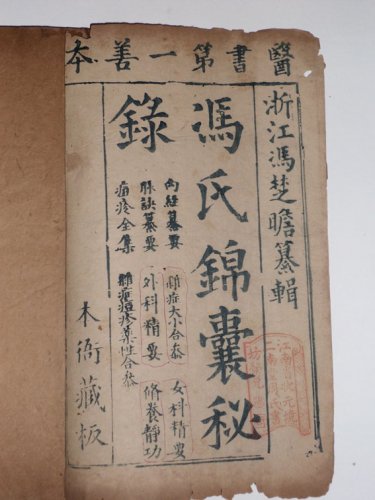 醫書第一善本
浙江馮楚瞻纂輯
馮氏錦囊秘
錄
内經纂要
雜症大小合參
女科精要
脉訣纂要
外科精要
修養靜功
痘疹全集
雜症痘疹藥性合參
本衙藏板